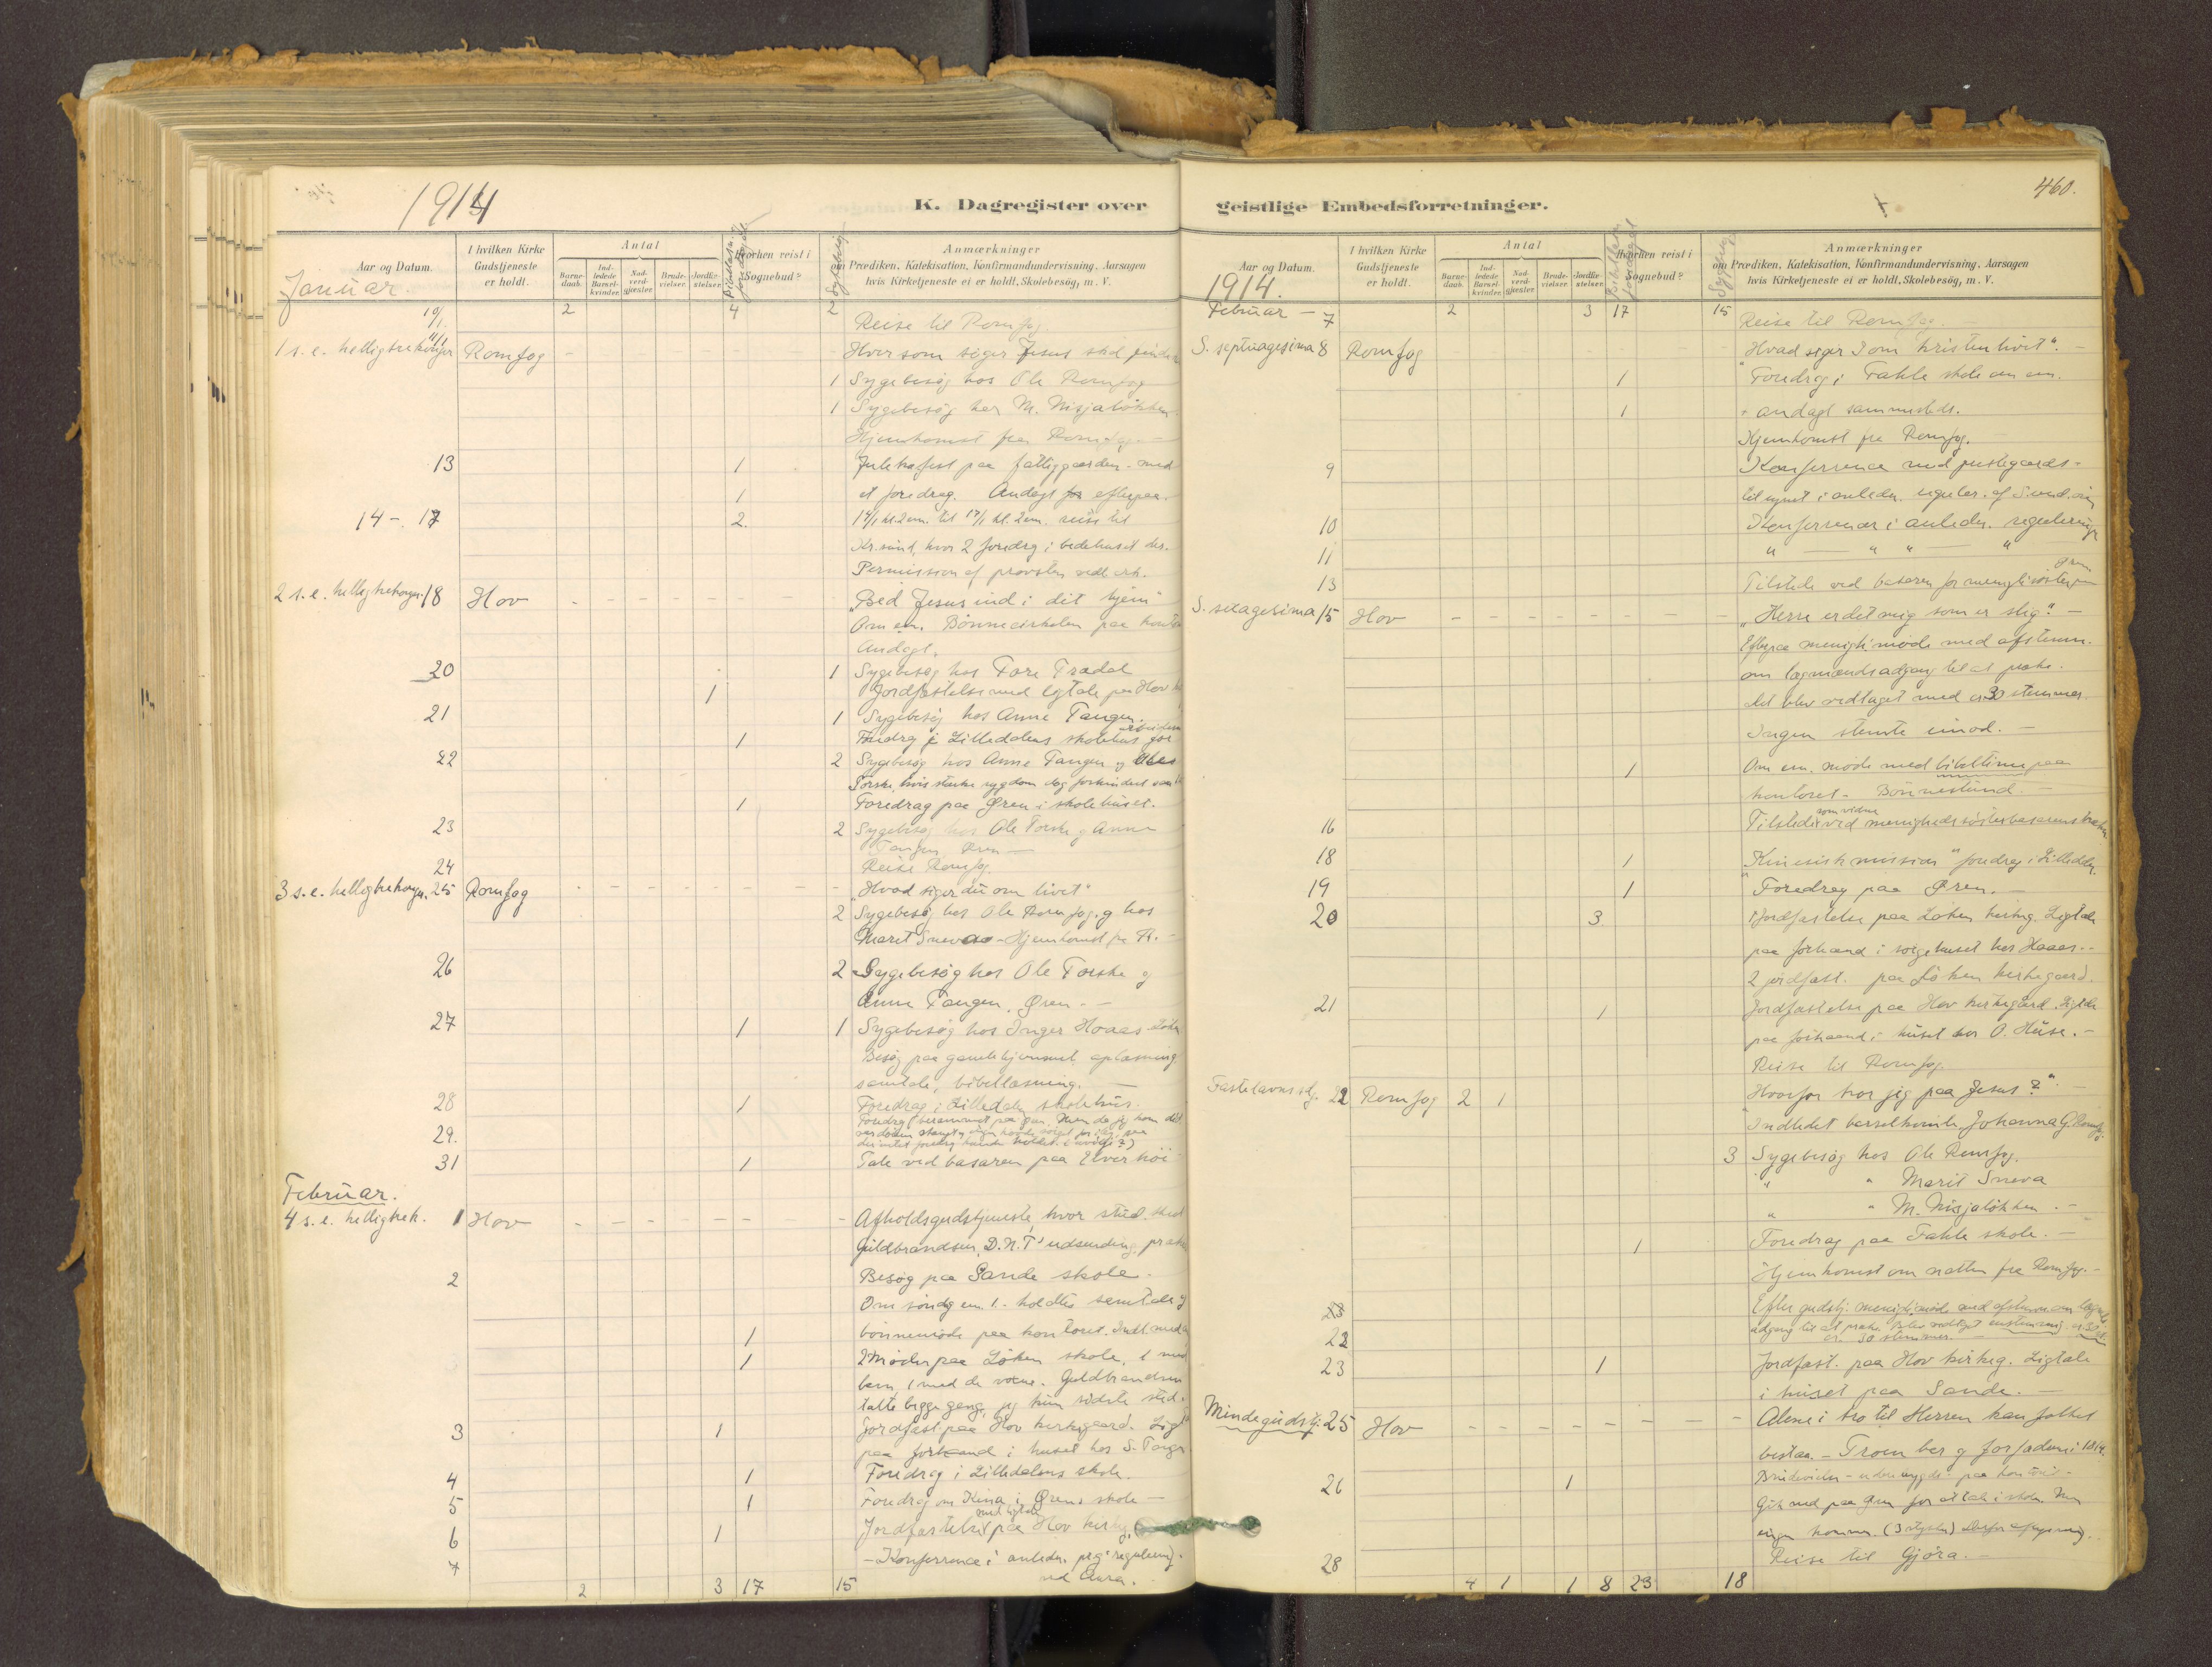 1914
K. Dagregister over
Aar og Datum.
I hvilken Kirke Gudstjeneste er holdt.
Antal
Barnedaab.
Indledede Barselkvinder.
Nadverdgjæster.
Brudevielser.
Jordfæstelser.
Hvorhen reist i Sognebud?
Sygebesøg
Anmærkninger
om Prædiken, Katekisation, Konfirmandundervisning, Aarsagen
hvis Kirketjeneste ei er holdt, Skolebesøg, m. V.
Januar.
10/1. 2 4 2 Reise til Romfog.
11/1
1 s. e. helligtrekonger Romfog Hver som siger Jesus skal
1 Sygebesøg hos Ole Romfog
1 Sygebesøg hos M. Nisjaløkken.
Hjemkomst fra Romfog. -
13 1 Juletrefest paa fattiggaarden - med
1 et foredrag. Andagt efterpaa.
14 - 17 2. 14/1 kl. 2 em. til 17/1 kl. 2 em. reise til
Kr.sund, hvor 2 foredrag i bedehuset der.
Permission af provsten
2 s. e. helligtrekonger. 18 Hov „Bed Jesus ind i dit hjem"
Om em. Bönnecirkelen paa
Andagt.
20 1 Sygebesøg hos Tore Trædal
1 Jordfæstelse med ligtale paa Hov
21 1 Sygebesøg hos Anne Tangen.
1 Foredrag i Lilledalens skolehus for
22 2 Sygebesøg hos Anne Tangen og
Torske, hvis sterke sygdom dog forhindret
1 Foredrag paa Øren i skolehuset.
23 2 Sygebesøg hos Ole Torske og Anne
Tangen, Øren -
24 Reise Romfog.
3 s. e. helligtrekonger. 25 Romfog „Hvad siger du om livet"
2 Sygebesøg hos Ole Romfog. og hos
Marit Sneva - Hjemkomst fra R. -
26 2 Sygebesøg hos Ole Torske og
Anne Tangen, Øren - -
27 1 1 Sygebesøg hos Inger Hoaas
Besøg paa gamlehjemmet, oplæsning
samtale, bibellæsning. -
28 1 Foredrag i Lilledalen skolehus.
29. Foredrag berammet paa Øren. Men da jeg kom did
31 1 Tale ved basaren paa Elverhöi
Februar.
4 s. e. helligtrek. 1 Hov Afholdsgudstjeneste, hvor stud.
Guldbrandsen, D. N. T' udsending,
2 Besøg paa Sande skole.
Om søndag em. 1. - holdtes samtale og
1 bönnemöde paa kontoret.
1 2 møder paa Løken skole, 1 med
barn, 1 med de voxne. Guldbrandsen
talte begge gange, jeg kun sidste sted.
3 1 Jordfæst. paa Hov kirkegaard.
paa forhaand i huset hos S.
4 1 Foredrag i Lilledalens skole.
5 1 Foredrag om Kina i Ørens skole -
med ligtale
6 1 Jordfæstelse paa Hov
7 - Konferrence i anledn. regulering.
ved Aura.
2 3 17 15
geistlige Embedsforretninger.
460.
Aar og Datum.
I hvilken Kirke Gudstjeneste er holdt.
Antal
Barnedaab.
Indledede Barselkvinder.
Nadverdgjæster.
Brudevielser.
Jordfæstelser.
Hvorhen reist i Sognebud?
Anmærkninger
om Prædiken, Katekisation, Konfirmandundervisning, Aarsagen
hvis Kirketjeneste ei er holdt, Skolebesøg, m. V.
1914.
Februar - 7 2 3 17 15 Reise til Romfog. -
S. septuagesima 8 Romfog „Hvad siger I om kristenlivet". -
1 Foredrag i Fahle skole om em.
1 - andagt sammesteds.
Hjemkomst fra Romfog. -
9 Konferrence med prestegaards-
tilsynet i anledn. reguler. af
10 Konferrencer i anledn. regulering
11 " - " " - "
13 Tilstede ved basaren for
S. sexagesima 15 Hov „Herre er det mig som er slig". -
Efterpaa menigh. möde med afstemn.
om lægmænds adgang til at præke.
det blev vedtaget med ca 30 stemmer.
Ingen stemte imod. -
1 Om em. möde med bibeltime paa
kontoret - Bönnestund. -
som vidne
16 Tilstede ved menighedssösterbasarens
18 1 „Kinesisk mission" foredrag i Lilledalen.
19 1 Foredrag paa Øren. -
20 3 1 Jordfæstelse paa Løken kirkeg. Ligtale
paa forhaand i sørgehuset hos Hoaas. -
2 jordfæst. paa Løken kirkegaard.
21 1 Jordfæstelse paa Hov kirkegaard. Ligtale
paa forhaand i huset hos O. Huse. -
Reise til Romfog.
Fastelavnssd. 22 Romfog 2 1 Hvorfor tror jeg paa Jesus?" -
Indledet barselkvinde Johanna G.
3 Sygebesøg hos Ole Romfog.
" " Marit Sneva
" " M. Nisjaløkken. -
1 Foredrag paa Fahle skole. -
Hjemkomst om natten fra Romfog. -
23 Efter gudstj. menigh. möde med afstemn. om
22 adgang til at præke. Blev vedtaget enstemmig.
ca. 30 stemmer. -
23 1 Jordfæst. paa Hov kirkeg. Ligtale
i huset paa Sande. -
Mindegudstj. 25 Hov Alene i tro til Herren kan folket
bestaa. - Troen bar og forfædrene i 1814.
26 1 paa kontoret -
Gik ned paa Øren for at tale i skolen. Men
ingen komm. (3 stykker) Derfor aflysning.
28 Reise til Gjøra. -
4 1 1 8 23 18